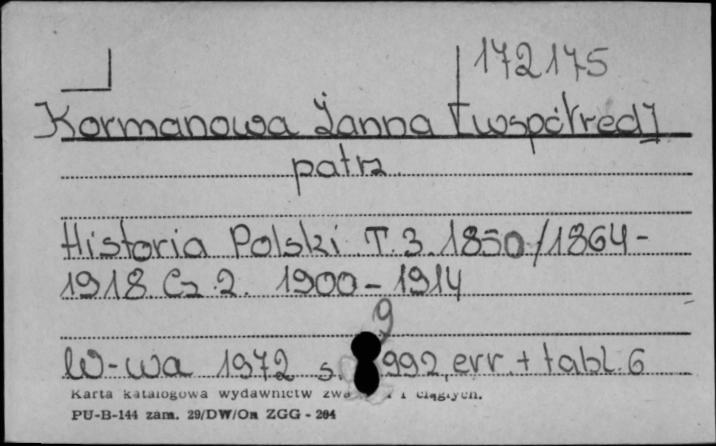 172175
Kormanowa Żanna [współred]
patrz
Historia Polski T. 3. 1850/1864-
1918. Cz. 2. 1900-1914
9
W-wa 1972 s. 992, err. + tabl. 6
Karta katalogowa wydawnictw i ciągłych.
PU-B-144 zam. 29/DW/On ZGG - 204